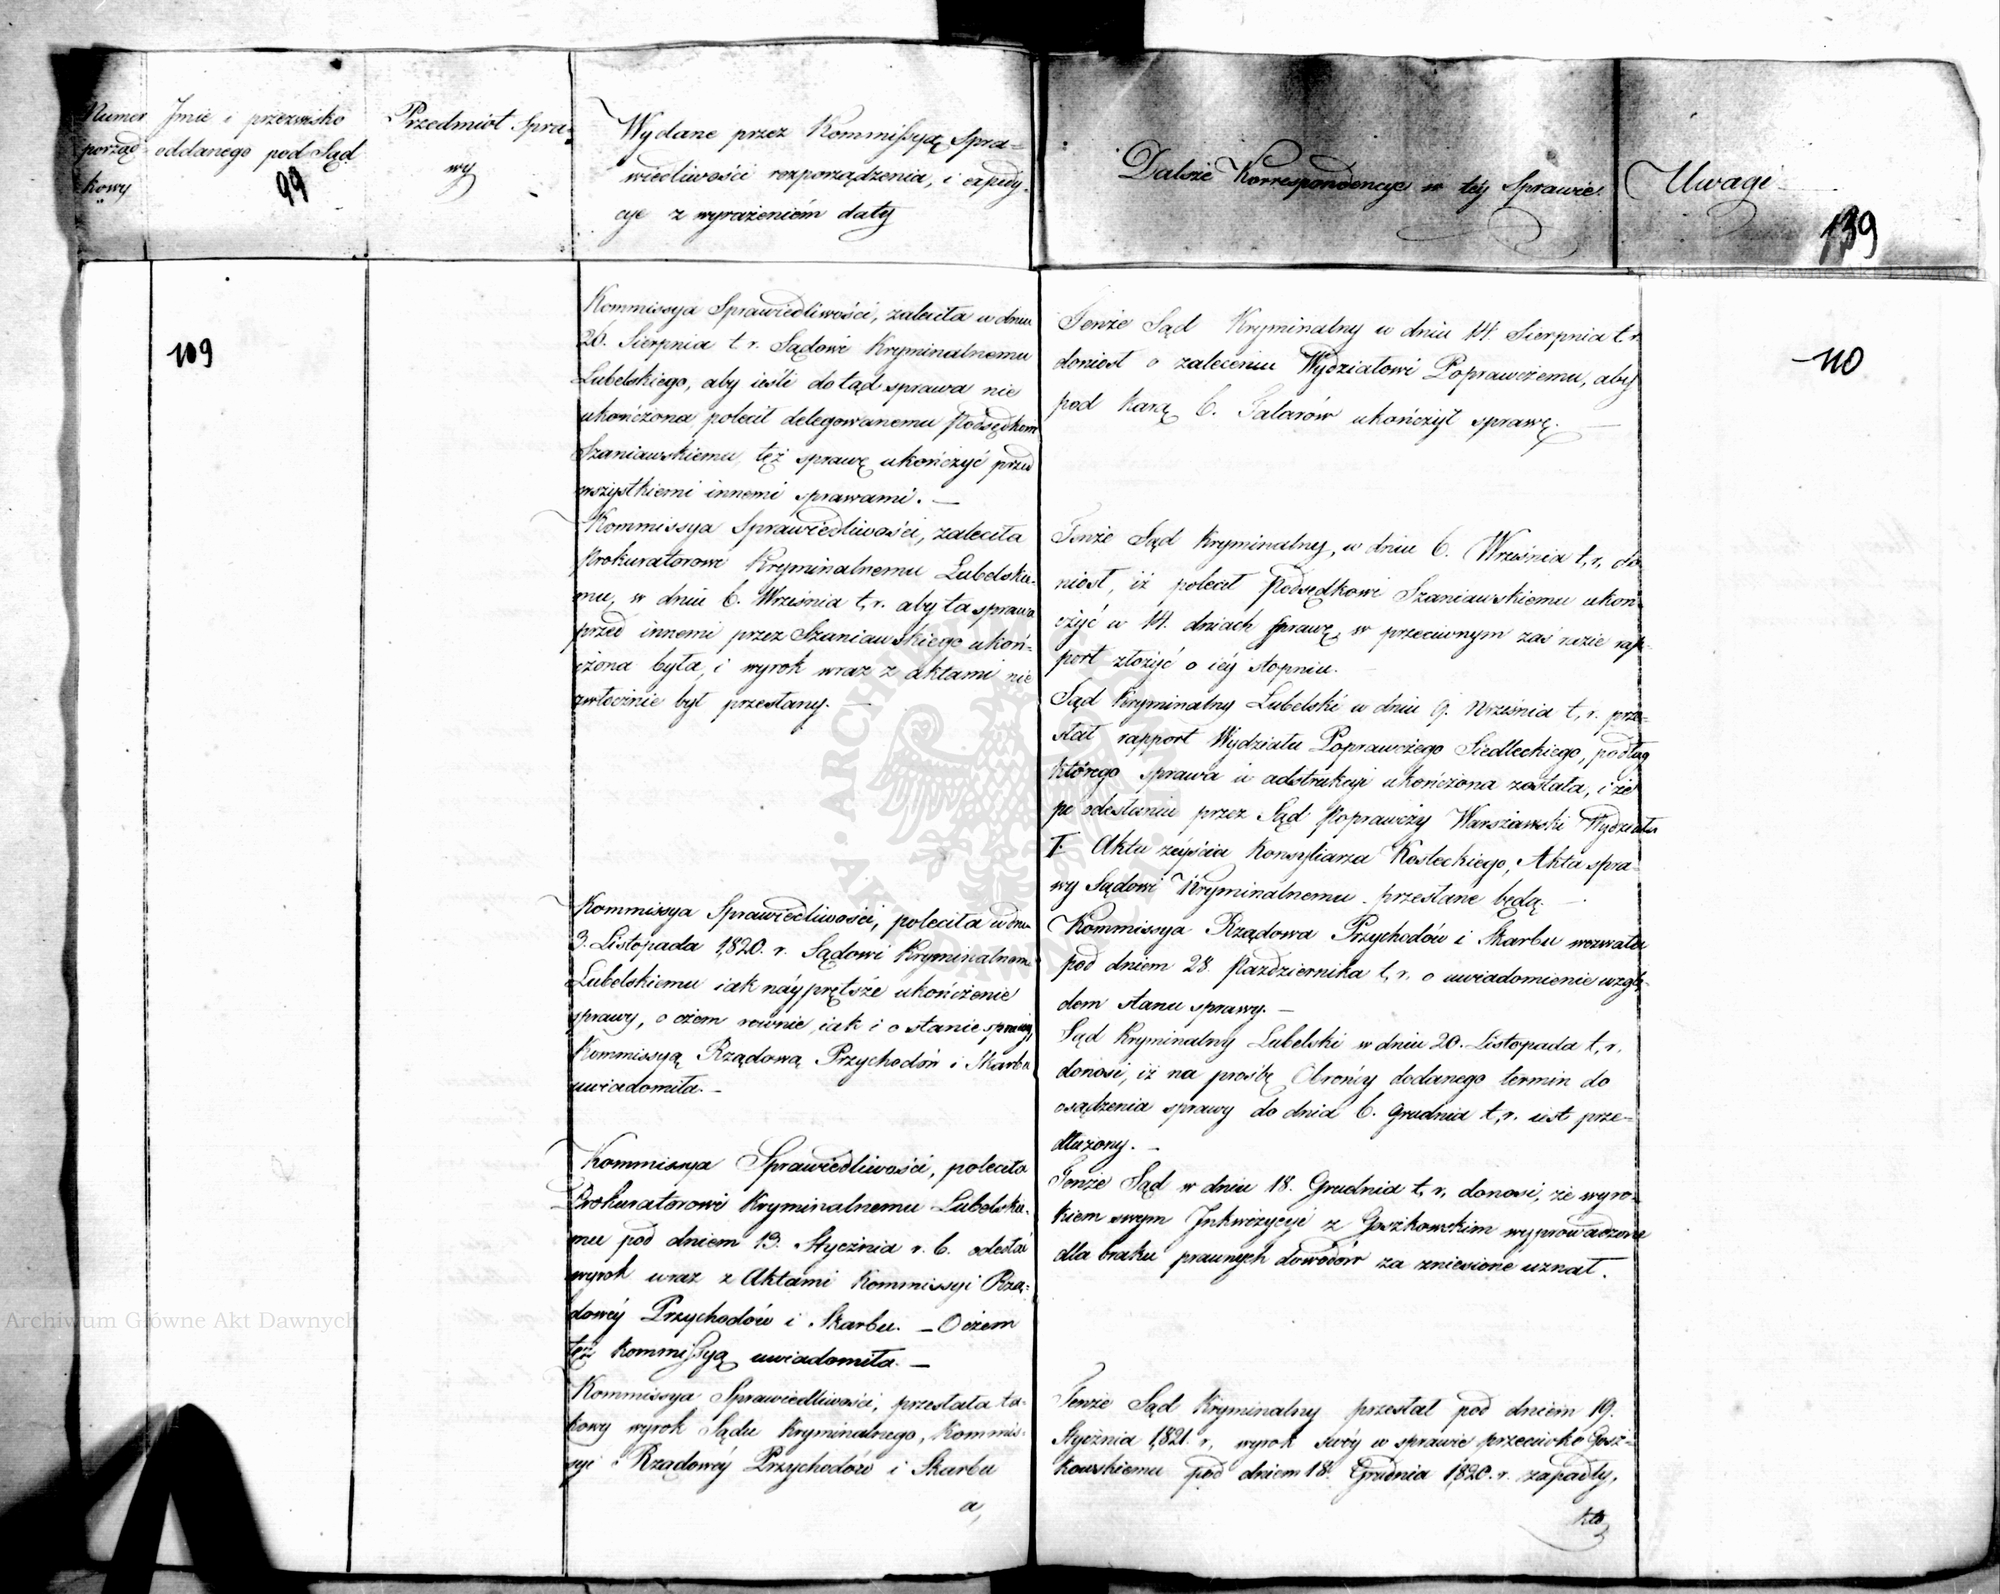 Numer
porząd-
kowy
Jmie i przezwisko
oddanego pod Sąd
99
Przedmiot Spra-
wy
Wydane przez Kommissyą Spra-
wiedliwości rozporządzenia, i expedy-
cye z wyrażeniem daty
Dalsze Korrespondencye w tey Sprawie.
Uwagi
139
109
Kommissya Sprawiedliwości, zaleciła w dniu
26. Sierpnia t. r. Sądowi Kryminalnemu
Lubelskiego, aby ieśli dotąd sprawa nie
ukończona polecił delegowanemu Podsędkowi
Szaniawskiemu też sprawę ukończyć przed
wszystkiemi innemi sprawami. —
Kommissya Sprawiedliwości, zaleciła
Prokuratorowi Kryminalnemu Lubelskie-
mu, w dniu 6. Września t. r. aby ta sprawa
przed innemi przez Szaniawskiego ukoń-
czona była, i wyrok wraz z aktami nie
zwłocznie był przesłany. —
Kommissya Sprawiedliwości, poleciła w dniu
3. Listopada 1820. r. Sądowi Kryminalnemu
Lubelskiemu iak náyprętsze ukończenie
sprawy, o czem rownie iak i o stanie sprawy,
Kommissyą Rządową Przychodów i Skarbu
uwiadomiła. —
Kommissya Sprawiedliwości, poleciła
Prokuratorowi Kryminalnemu Lubelskie-
mu pod dniem 13. Stycznia r. b. odesłać
wyrok wraz z Aktami Kommissyi Rzą-
dowéy Przychodów i Skarbu. — O czem
też Kommissyą uwiadomiła. —
Kommissya Sprawiedliwości, przesłała ta-
kowy wyrok Sądu Kryminalnego, Kommis-
syi Rządowéy Przychodów i Skarbu
a,
Tenże Sąd Kryminalny w dniu 14. Sierpnia t. r.
doniosł o zaleceniu Wydziałowi Poprawczemu, aby
pod karą 6. Talarów ukończył sprawę. —
Tenże Sąd Kryminalny, w dniu 6. Września t. r. do-
niosł, iż polecił Podsędkowi Szaniawskiemu ukoń-
czyć w 14. dniach sprawę, w przeciwnym zaś razie rap-
port złożyć o iéy stopniu.
Sąd Kryminalny Lubelski w dniu 9. Września t. r. prze-
słał rapport Wydziału Poprawczego Siedleckiego, podług
którego sprawa w adstrukcyi ukończona została, i że
po odesłaniu przez Sąd Poprawczy Warszawski Wydziału
I. Aktu zeyścia Konsyliarza Kosteckiego, Akta spra-
wy Sądowi Kryminalnemu przesłane będą. —
Kommissya Rządowa Przychodów i Skarbu wezwała
pod dniem 28. Pazdziernika t. r. o uwiadomienie wzglę-
dem stanu sprawy. —
Sąd Kryminalny Lubelski w dniu 20. Listopada t. r.
donosi, iż na prośbę Obrońcy dodanego termin do
osądzenia sprawy do dnia 6. Grudnia t. r. iest prze-
dłużony. —
Tenże Sąd w dniu 18. Grudnia t. r. donosi, że wyro-
kiem swym Inkwizycyę z Goszkowskim wyprowadzoną
dla braku prawnych dowodów za zniesione uznał.
Tenże Sąd Kryminalny przesłał pod dniem 19.
Stycznia 1821. r. wyrok swóy w sprawie przeciwko Gosz-
kowskiemu pod dniem 18. Grudnia 1820. r. zapadły,
110
Archiwum Główne Akt Dawnych
Archiwum Główne Akt Dawnych